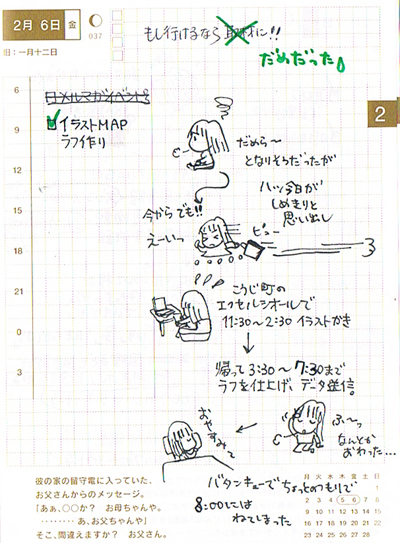 2月 6日 金
037
旧:一月十二日
もし行けるなら取材に!!
だめだった
6
9
12
15
18
21
0
3
2
日メルマガイベント
イラストMAP
ラフ作り
だめら〜
となりそうだったが
ハッ今日が
しめきりと
思い出し
今からでも!!
えーいっ
ピュー
こうじ町の
エクセルシオールで
11:30〜2:30 イラストかき
帰って3:30〜7:30まで
ラフを仕上げ、データ送信。
ふ〜っ
なんとか
おわった…
おやすみ〜
バタンキューでちょっとのつもりで
8:00にはねてしまった
彼の家の留守電に入っていた、
お父さんからのメッセージ。
「あぁ、○○か? お母ちゃんや。
………あ、お父ちゃんや」
そこ、間違えますか? お父さん。
月 火 水 木 金 土 日
1
2 3 4 5 6 7 8
9 10 11 12 13 14 15
16 17 18 19 20 21 22
23 24 25 26 27 28